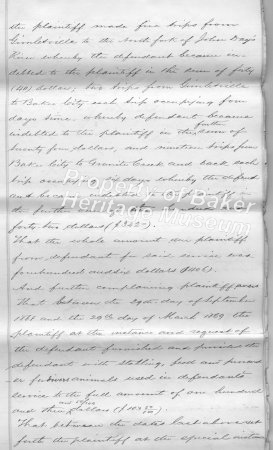 the plaintiff made five trips from
Gimletville to the north fork of John Day's
River whereby the defendant became in-
debted to the plaintiff in the sum of forty
(40) dollars; two trips from Gimletville
to Baker City each trip occupying four
days time, whereby defendant became
indebted to the plaintiff in the further sum of
twenty four dollars, and nineteen trips from
Baker City to Granite Creek and back each
trip six days whereby the defend
ant became indebted to plaintiff in
the further
forty two dollars ($342.00).
That the whole amount due plaintiff
from defendant for said service was
four hundred and six dollars ($406).
And further complaining plaintiff avers
That between the 29th day of September
1888 and the 29th day of March 1889 the
plaintiff at the instance and request of
the defendant furnished and provided the
defendant with stabling, feed and
for animals used in defendants
service to the full amount of one hundred
and three and 50/100 dollars ($103 50/100)
That between the dates last above set
forth the plaintiff at the special instance
Property of Baker
Heritage Museum